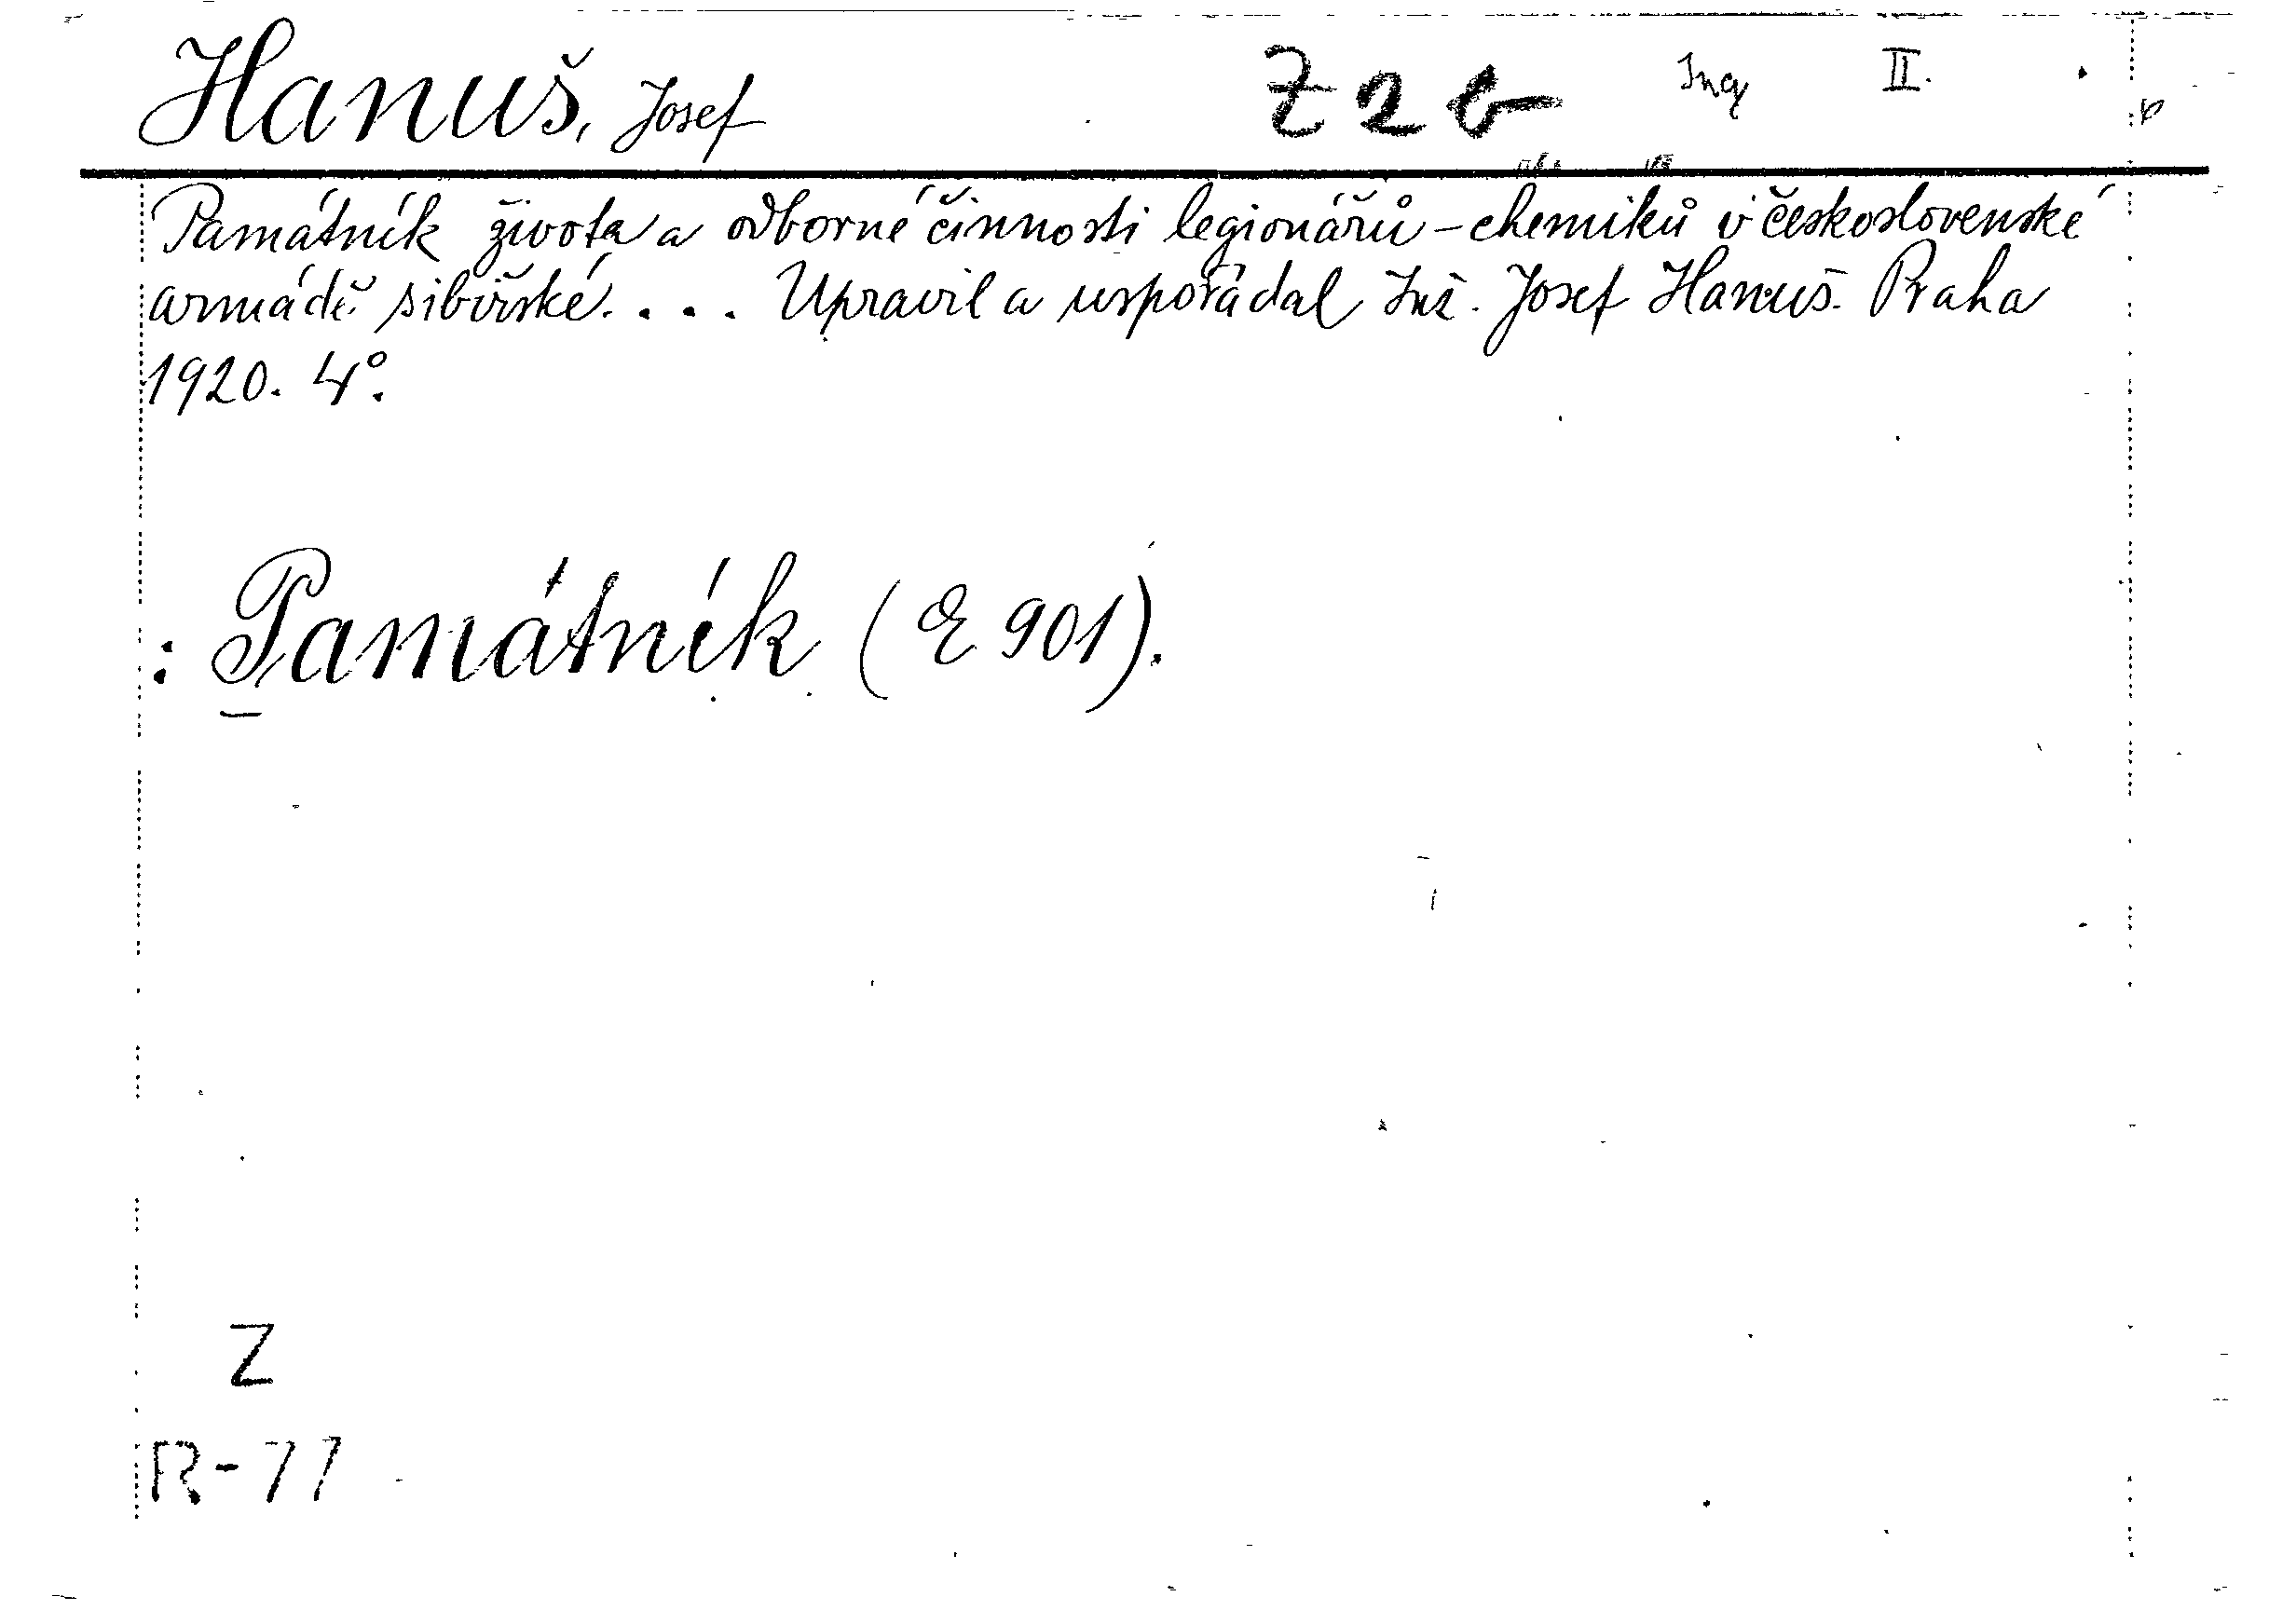 Hanuš, Josef Z 2 b Ing II.
Památník života a odborné činnosti legionářů-chemiků v československé
armádě sibiřské. . . . Upravil a uspořádal Inž. Josef Hanuš. Praha
1920. 4°.
: Památník (E 901).
Z
R-77